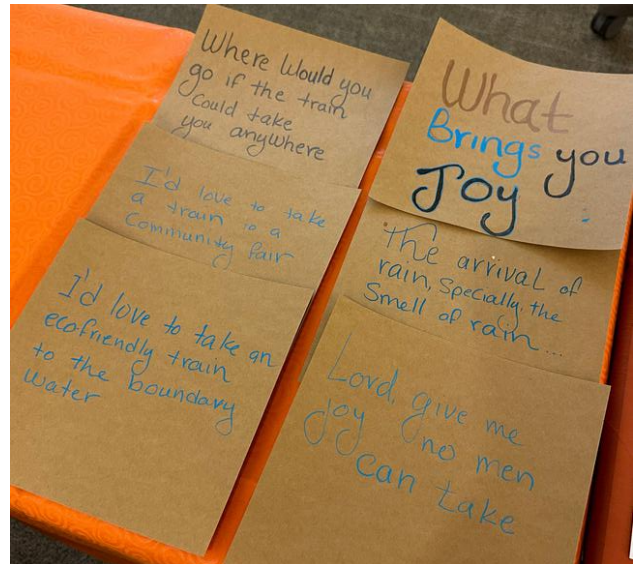 Where Would you
go if the train
Could take
you anywhere
I'd love to take
a train to a
Community fair
I'd love to take an
ecofriendly train
to the boundary
water
What
Brings you
Joy
The arrival of
rain, Specially, the
Smell of rain...
Lord, give me
joy no men
can take